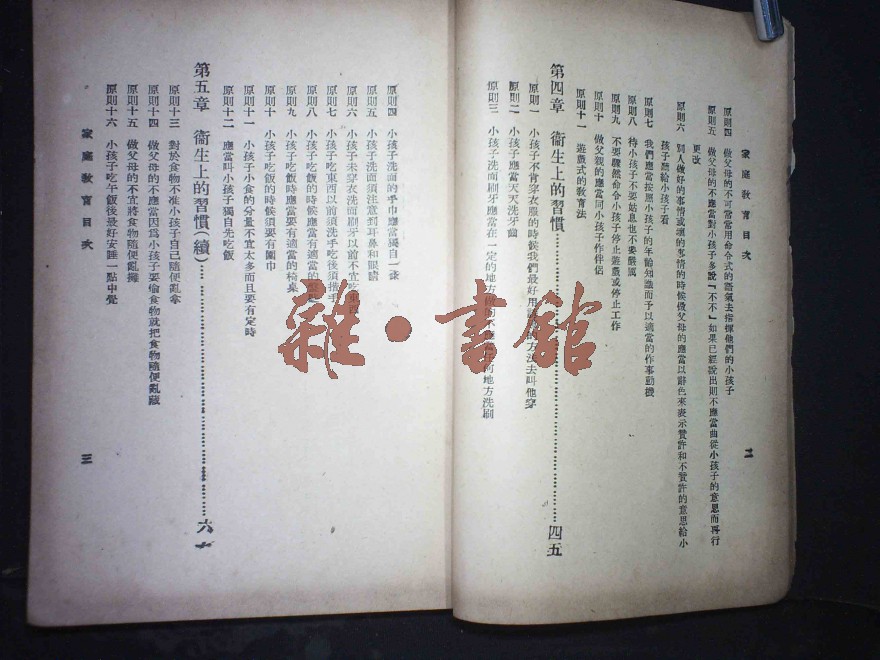 家庭教育目次
二
原則四　做父母的不可常常用命令式的語氣去指揮他們的小孩子
原則五　做父母的不應當對小孩子多說『不不』如果已經說出則不應當曲從小孩子的意思而再行
更改
原則六　別人做好的事情或壞的事情的時候做父母的應當以辭色來表示贊許和不贊許的意思給小
孩子聽給小孩子看
原則七　我們應當按照小孩子的年齡知識而予以適當的作事動機
原則八　待小孩子不要姑息也不要嚴厲
原則九　不要驟然命令小孩子停止遊戲或停止工作
原則十　做父親的應當同小孩子作伴侶
原則十一　遊戲式的教育法
第四章　衞生上的習慣……四五
原則一　小孩子不肯穿衣服的時候我們最好用方法去叫他穿
原則二　小孩子應當天天洗牙齒
原則三　小孩子洗面刷牙應當在一定的地方地方洗刷
原則四　小孩子洗面的手巾應當獨自一條
原則五　小孩子洗面須注意到耳鼻和眼睛
原則六　小孩子未穿衣洗面刷牙以前不宜吃東西
原則七　小孩子吃東西以前須洗手吃後須揩手
原則八　小孩子吃飯的時候應當有適當的
原則九　小孩子吃飯時應當要有適當的椅桌
原則十　小孩子吃飯的時候須要有圍巾
原則十一　小孩子小食的分量不宜太多而且要有定時
原則十二　應當叫小孩子獨自先吃飯
第五章　衞生上的習慣（續）……六一
原則十三　對於食物不准小孩子自己隨便亂拿
原則十四　做父母的不應當因爲小孩子要偷食物就把食物隨便亂藏
原則十五　做父母的不宜將食物隨便亂擺
原則十六　小孩子吃午飯後最好安睡一點中覺
家庭教育目次
三
雜·書館